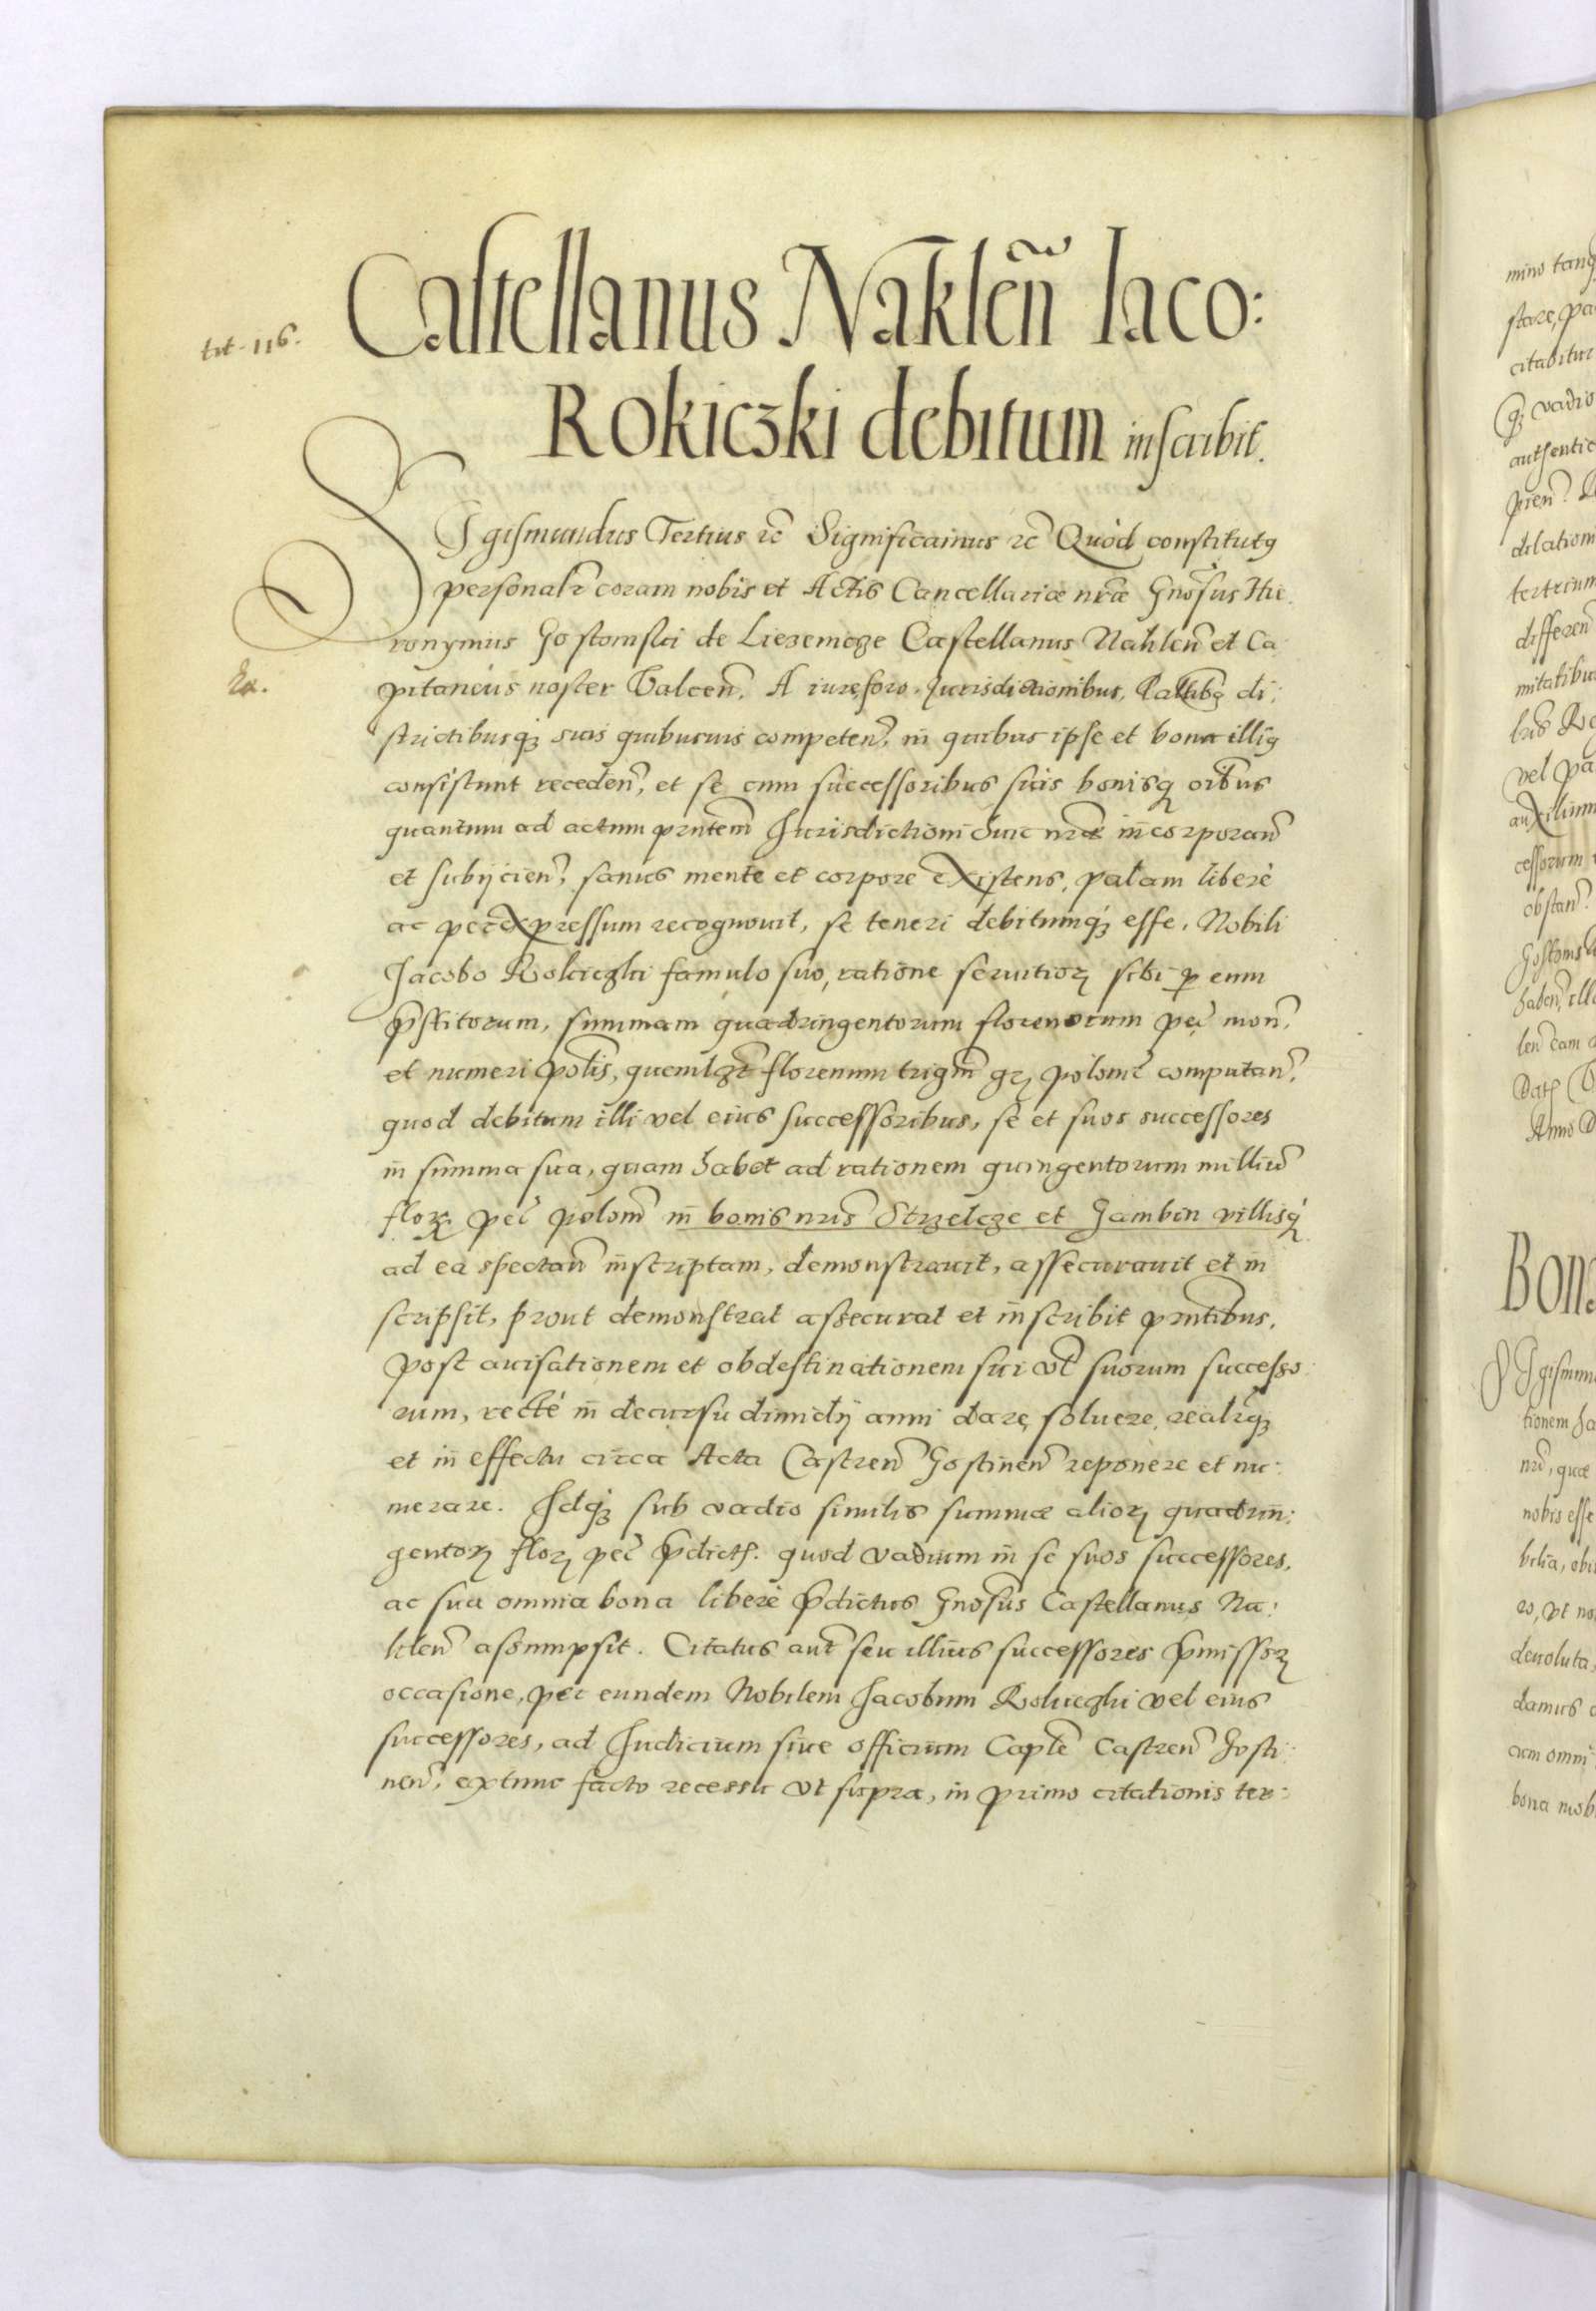 tit. 116.
Castellanus Naklen̄ Iaco:
Rokiczki debitum inscribit.
SIgismundus Tertius etc̄ Significamus etc̄ Quòd constitutꝰ
personalr̄ coram nobis et Actis Cancellariæ nr̄æ Gnōsus Hie
ronymus Gostomski de Liezenicze Castellanus Naklen̄ et Ca
Ra.
pitaneus noster Valcen̄. A iure, foro, Jurisdictionibus, Pallatibꝫ di:
strictibusqꝫ suis quibusuis competen̄, in quibus ipse et bona illiꝰ
consistunt receden̄, et se cum successoribus suis bonisqꝫ oībus
quantum ad actum pn̄tem Jurisdictioni huic nr̄æ incorporan̄
et subijcien̄, sanus mente et corpore existens, palam liberè
ac per expressum recognouit, se teneri debitumqꝫ esse, Nobili
Jacobo Rokiczki famulo suo, ratione seruitioꝝ sibi ꝑ eum
p̄stitorum, summam quadringentorum florenorum pec̄ mon̄,
et numeri Polīs, quemlꝫt florenum trigin̄ gꝝ polonī computan̄,
quod debitum illi vel eius successoribus, se et suos successores
in summa sua, quam habet ad rationem quingentorum milliū
floꝝ pec̄ polon̄ in bonis nr̄is Strzelcze et Gambin villisqꝫ
ad ea spectan̄ inscriptam, demonstrauit, assecurauit et in
scripsit, prout demonstrat assecurat et inscribit pn̄tibus,
Post auisationem et obdestinationem sui vl̄ suorum successo
rum, rectè in decursu dimidij anni dare, soluere, realrꝫ
et in effectu circa Acta Castren̄ Gostinen̄ reponere et nu:
merare. Idqꝫ sub vadio similis summæ alioꝝ quadrin:
gentoꝝ floꝝ pec̄ p̄dict̄. quod vadium in se suos successores,
ac sua omnia bona liberè p̄dictus Gnōsus Castellanus Na:
klen̄ assumpsit. Citatus aut̄ seu illius successores p̄missoꝝ
occasione, per eundem Nobilem Jacobum Rokiczki vel eius
successores, ad Judicium siue officium Capl̄e Castren̄ Gosti:
nen̄, extunc facto recessu vt supra, in primo citationis ter: